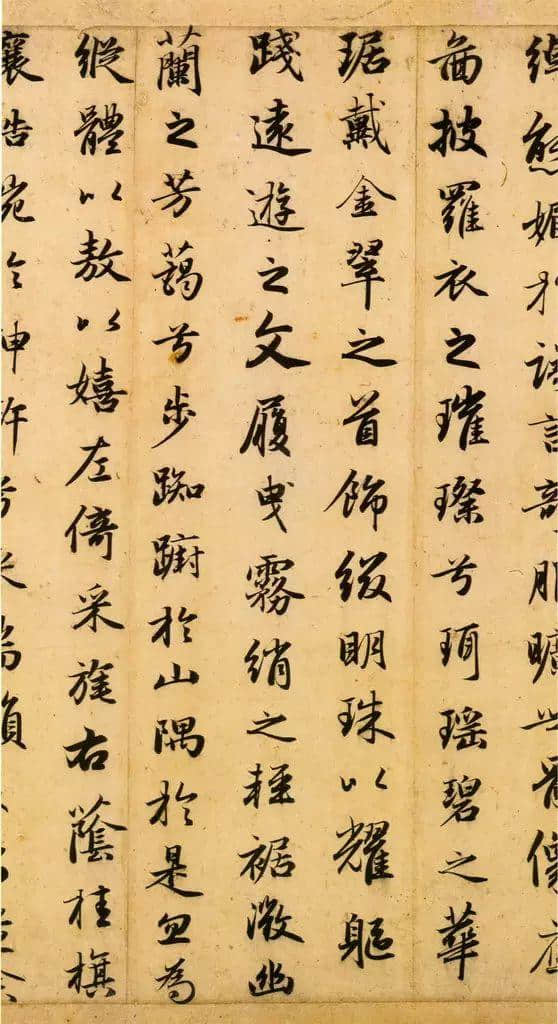 綽態媚於語言奇服曠世骨像應
啚披羅衣之璀璨兮珥瑶碧之華
琚戴金翠之首飾綴明珠以耀軀
踐遠遊之文履曳霧綃之輕裾微幽
蘭之芳藹兮步踟躕於山隅於是忽焉
縱體以敖以嬉左倚采旄右蔭桂旗